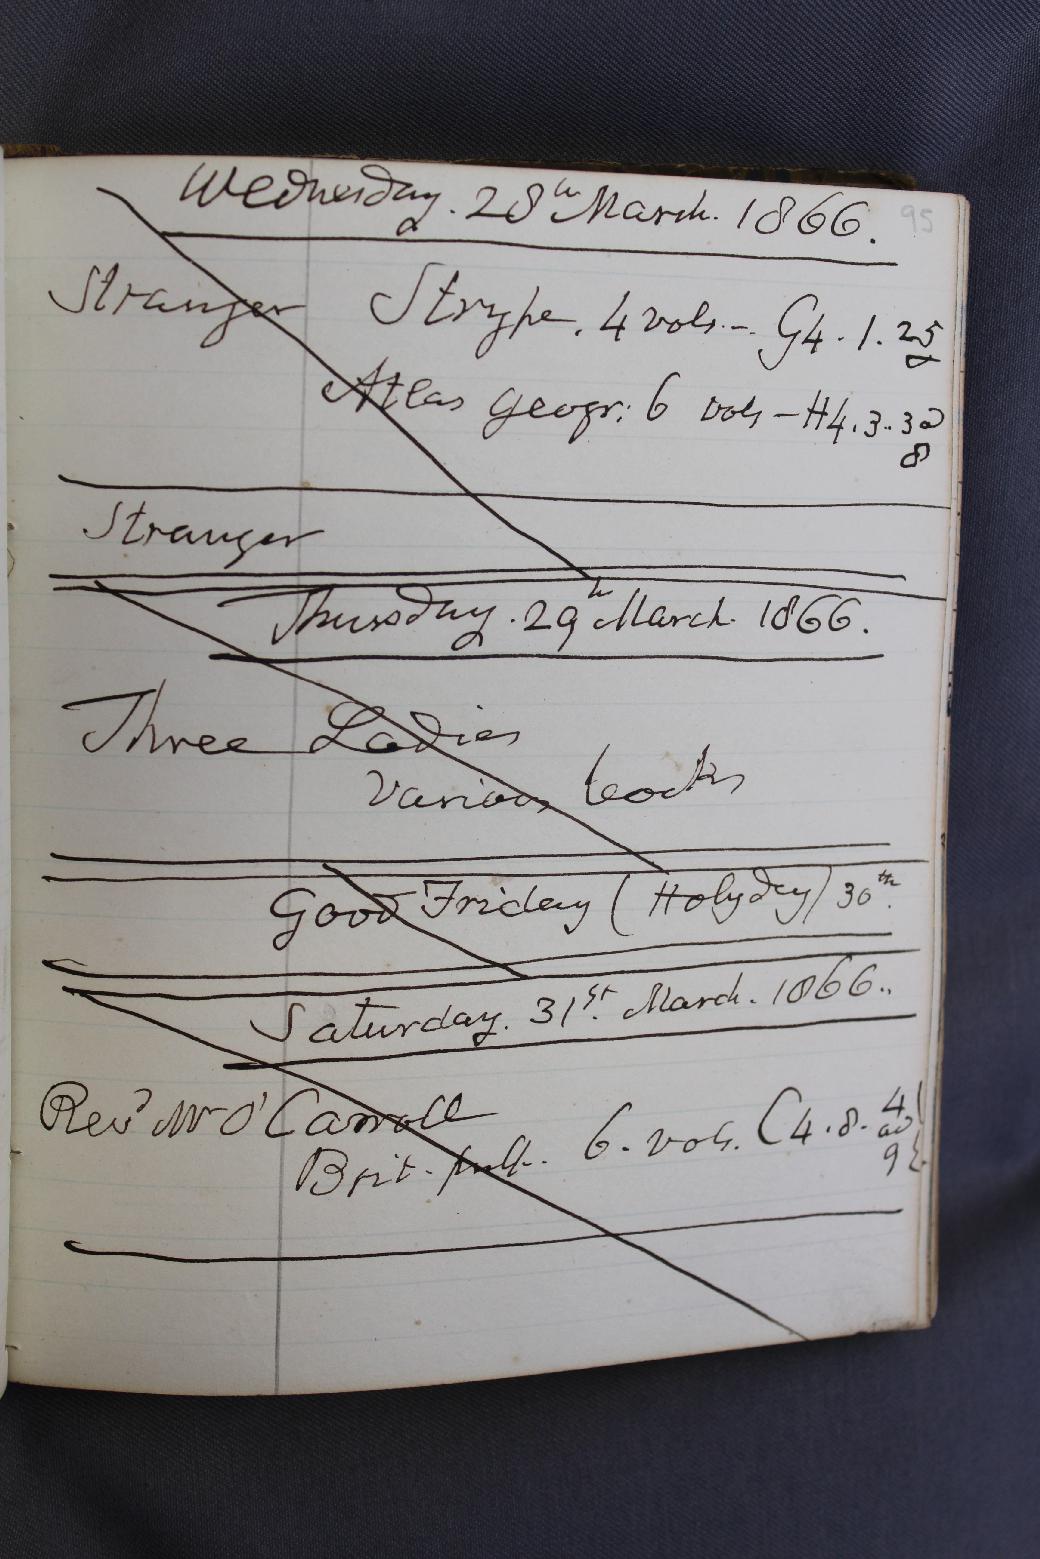 95
Wednesday. 28th March. 1866.
Stranger Strype. 4 vols. - G4. 1. 25
Atlas geogr: 6 vols - H4. 3. 32
8
Stranger
Thursday. 29th March. 1866.
Three Ladies
Various books
Good Friday (Holyday) 30th.
Saturday. 31st. March. 1866..
Revd Mr O'Carroll
Brit. 6. vols. C4. 8. 4
ad
9